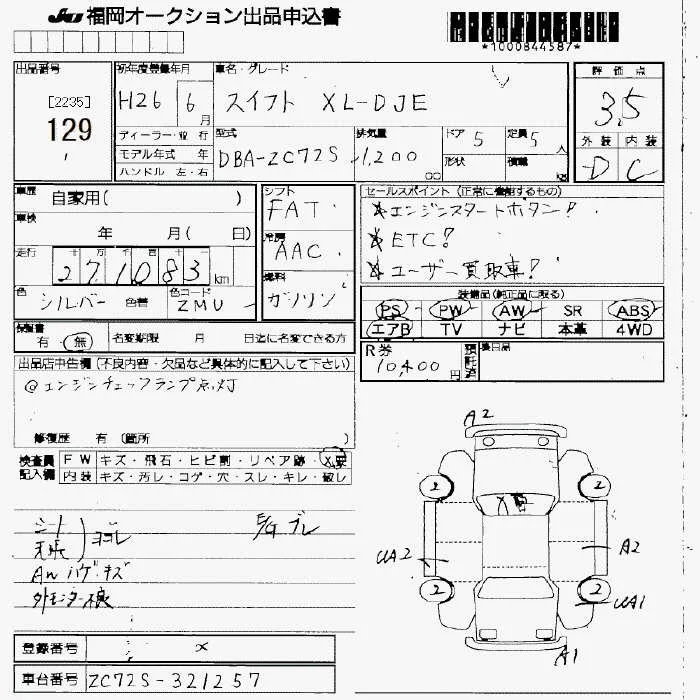 JU 福岡オークション出品申込書
*1000844587*
出品番号
[2235]
129
初年度登録年月
H26 6月
車名・グレード
スイフト XL-DJE
評価点
3.5
外装 内装
D C
ディーラー・並行
モデル年式 年
ハンドル 左・右
型式
DBA-ZC72S
排気量
1,200
cc
ドア 5
形状
定員 5人
積載 kg
車歴
自家用( )
車検
年 月( 日)
走行
十万千百十一
271083km
色
シルバー 色替
色コード
ZMU
シフト
FAT
冷房
AAC
燃料
ガソリン
セールスポイント(正常に機能するもの)
エンジンスタートボタン!
ETC!
ユーザー買取車!
装備品(純正品に限る)
PS PW AW SR ABS
エアB TV ナビ 本革 4WD
保証書
有・無
名変期限 月 日迄に名変できる方
R券
10,400円
預託済
後日品
出品店申告欄(不良内容・欠品など具体的に記入して下さい)
@エンジンチェックランプ点灯
修復歴 有(箇所
検査員記入欄
FW キズ・飛石・ヒビ割・リペア跡・X要
内装 キズ・汚レ・コゲ・穴・スレ・キレ・破レ
シート
天張
ヨゴレ
E/Gブレ
AWハゲキズ
外モニター痕
登録番号
×
車台番号 ZC72S-321257
A2
2
2
X要
UA2
A2
2
2
UA1
A1